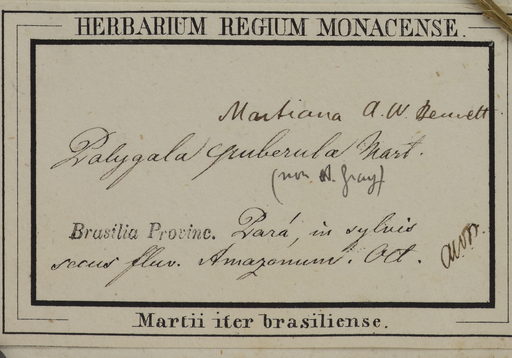 HERBARIUM REGIUM MONACENSE.
Martiana A. W. Bennett
Polygala puberula Mart.
(non A. Gray)
Brasilia Provinc. Pará, in sylvis
secus fluv. Amazonum. Oct.
Martii iter brasiliense.